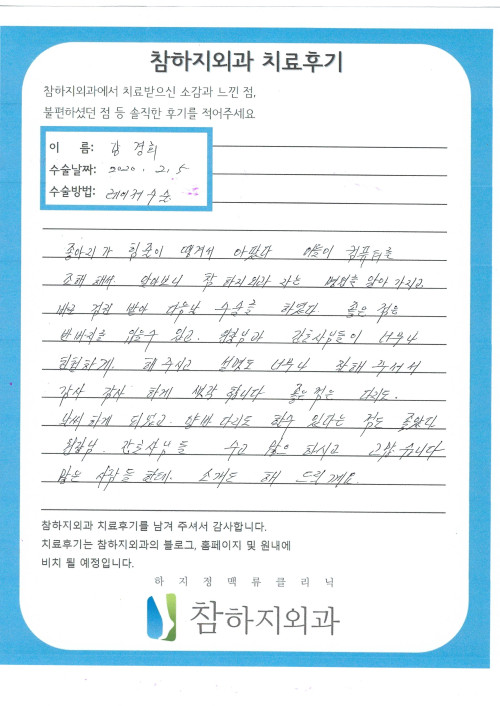 참하지외과 치료후기
참하지외과에서 치료받으신 소감과 느낀 점,
불편하셨던 점 등 솔직한 후기를 적어주세요
이 름: 김 경희
수술날짜: 2020. 2. 5
수술방법: 레이저수술
종아리가 힘줄이 땡겨서 아팠다 아들이 컴퓨터를
조회 해서 알아보니 참 하지외과 라는 병원을 알아 가지고
바로 검진 받아 다음날 수술을 하였다 좋은 점은
반바지를 입을수 있고. 원장님과 간호사님들이 너무나
친절하게. 해 주시고 설명도 너무나 잘해 주셔서
감사 감사 하게 생각 합니다 좋은 점은 다리도.
하게 되었고. 양반 다리도 할수 있다는 점도 좋았다
원장님. 간호사님들 수고 많으 하시고 고맙습니다
많은 사람들 한테. 소개도 해 드릴게요.
참하지외과 치료후기를 남겨 주셔서 감사합니다.
치료후기는 참하지외과의 블로그, 홈페이지 및 원내에
비치 될 예정입니다.
하지정맥류클리닉
참하지외과